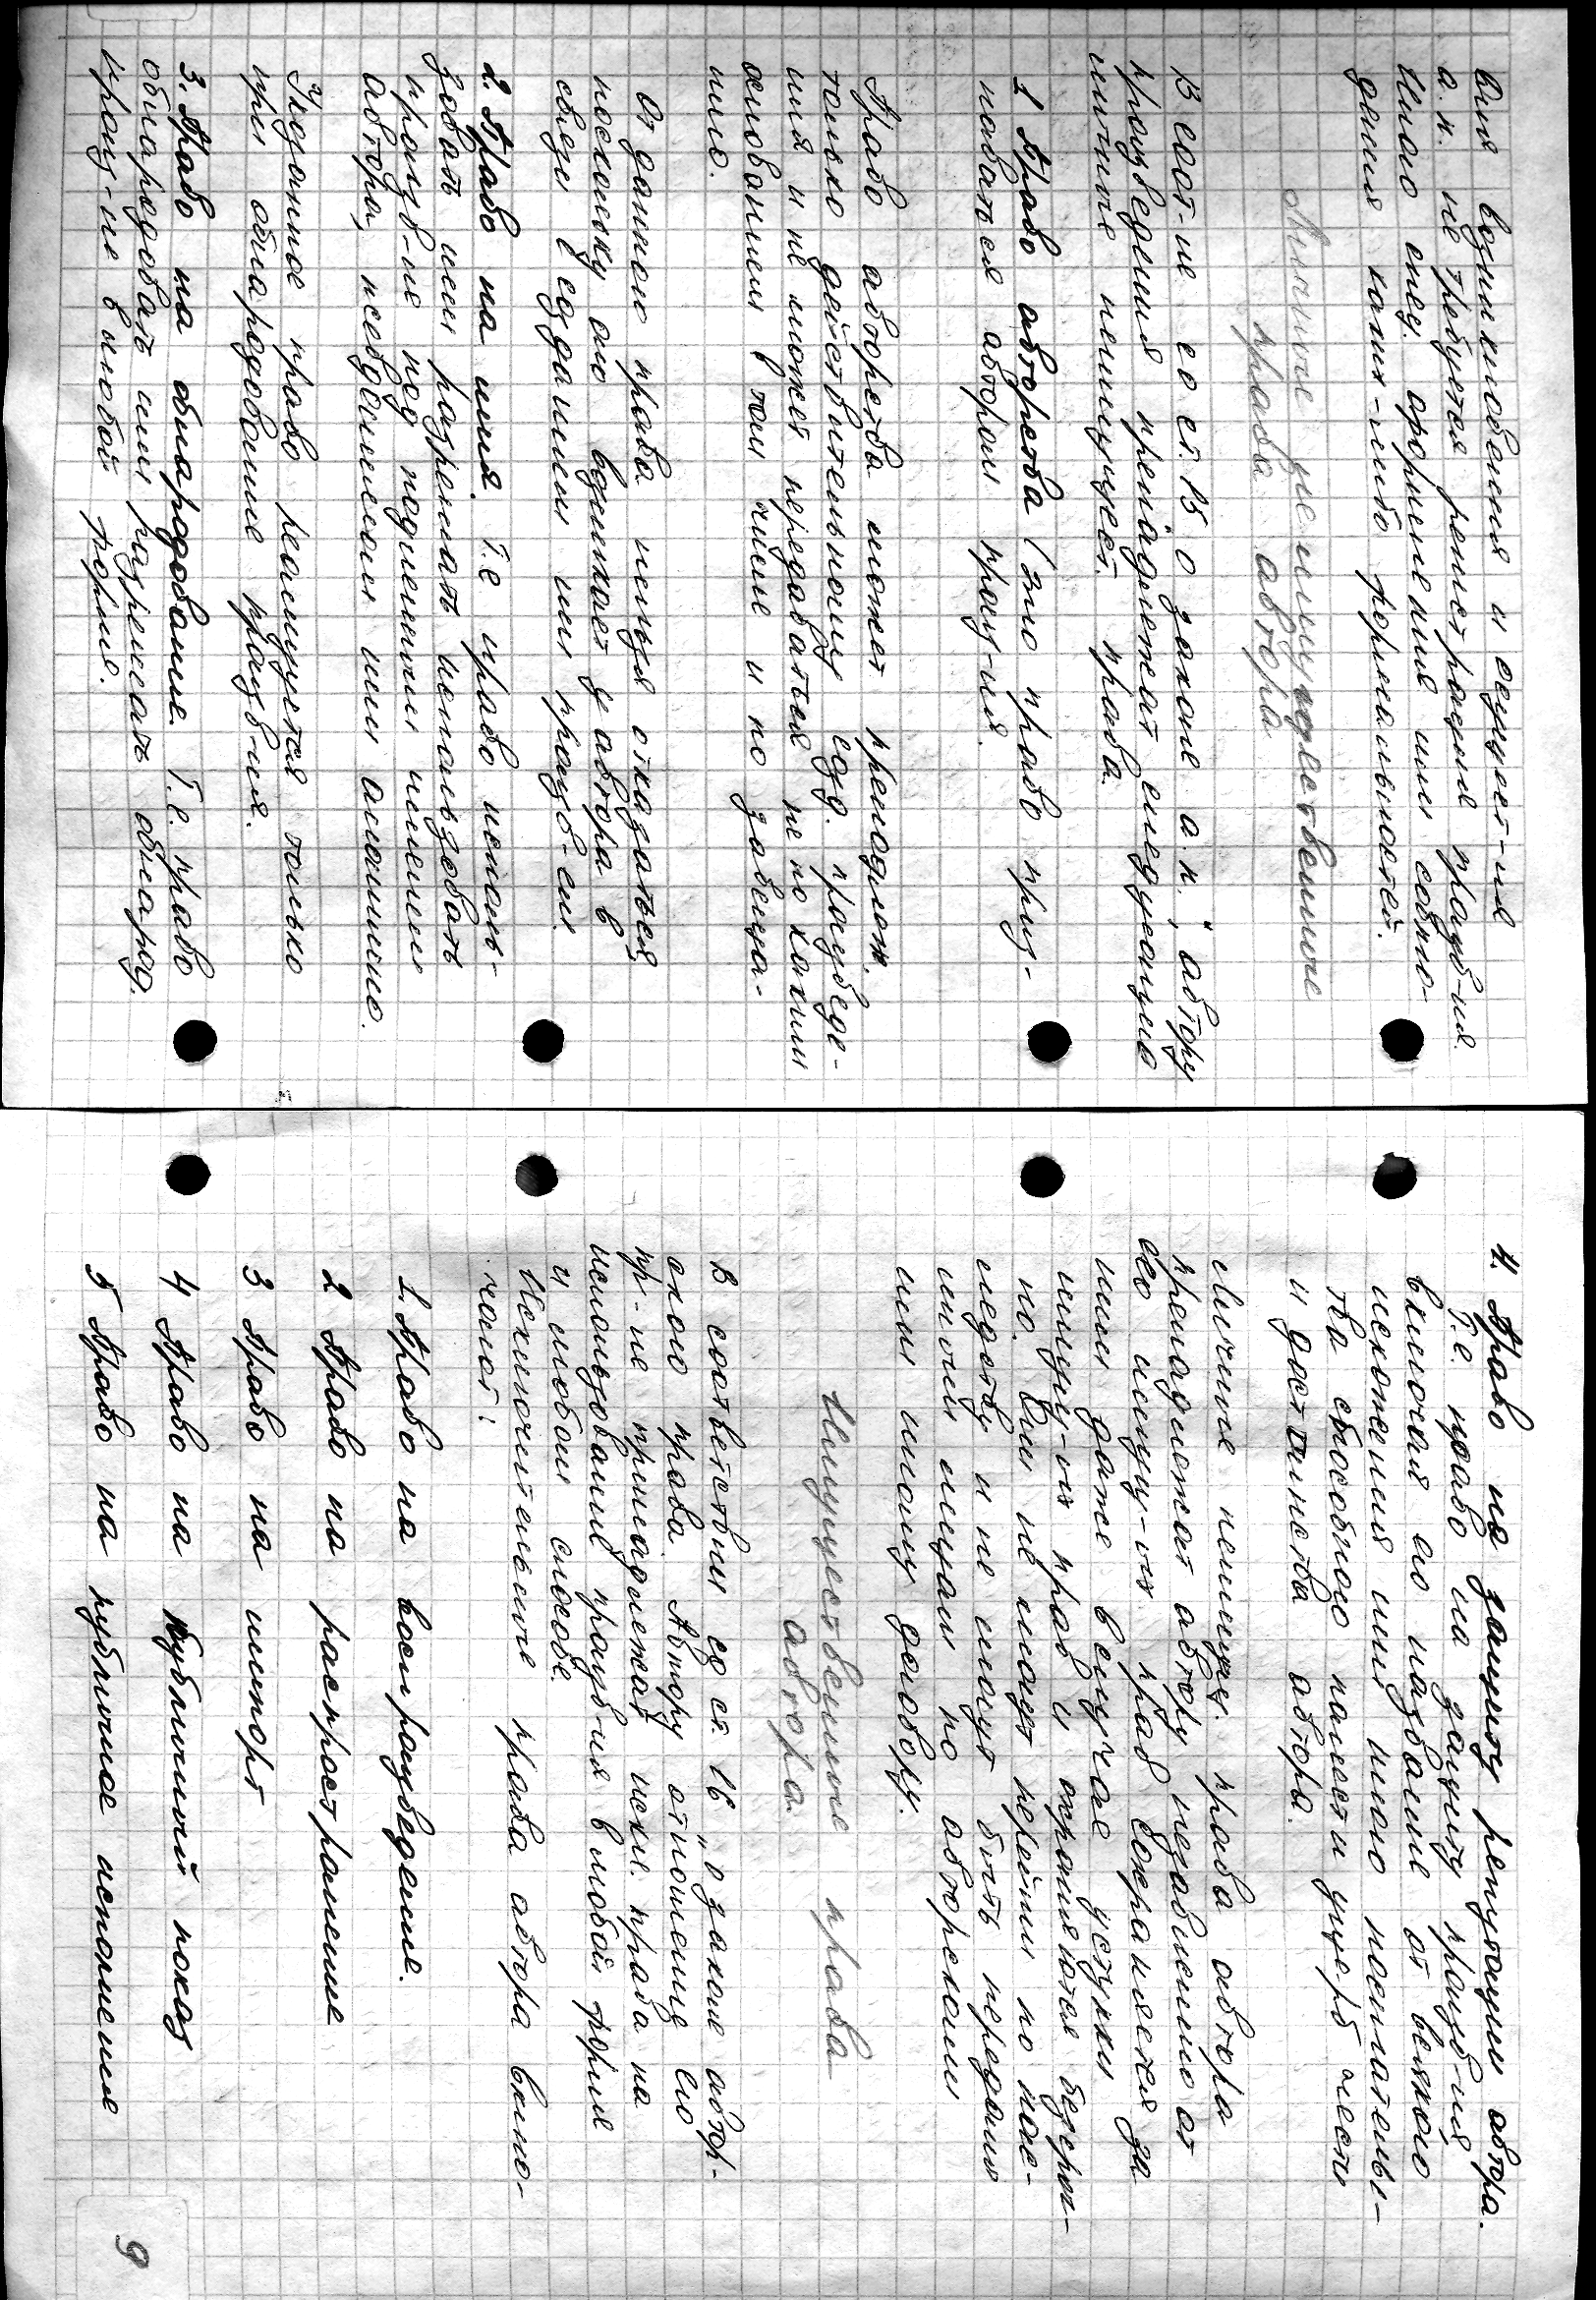 Для возникновения и осущест-ия
а.п. не требуется регистрация произв-ия.
Иного спец. оформления или соблю-
дения каких-либо формальностей.
Личные неимущественные
права автора
В соот-ие со ст. 15 О законе а.п., "автору
произведения принадлежат следующие
личные неимущест. права.
1 Право авторства (это право приз-
наваться автором произ-ия.
Право авторства может принадлеж.
только действительному созд. произведе-
ния и не может передаваться не по каким
основаниям в том числе и по завеща-
нию.
От данного права нельзя отказаться,
поскольку оно возникает у автора в
связи с созданием им произв-ем.
2. Право на имя. Т.е право исполь-
зовать или разрешать использовать
произв-ие под подлинным именем
автора, псевдонимом или анонимно.
Указанное право реализуется только
при обнародование произв-ия.
3. Право на обнародование. Т.е. право
обнародовать или разрешать обнарод.
произ-ие в любой форме.
4. Право на защиту репутации автора.
Т.е. право на защиту произв-ия,
включая его название от всякого
искажения или иного посягательс-
тва способного нанести ущерб чести
и достоинства автора.
Личные неимущ. права автора
принадлежат автору независимо от
его имущ-ых прав сохраняется за
ним даже в случае уступки
имущ-ых прав и охраняются бессроч-
но. Они не могут перейти по нас-
ледству и не могут быть переданы
иным лицам по авторским
или иному договору.
Имущественные права
автора.
В соответствии со ст. 16 „О законе автор-
ского права. Автору отношение его
пр-ие принадлежат искл. права на
использование произв-ия в любой форме
и любым способе.
Исключительные права автора вклю-
чают:
1. Право на воспроизведение.
2 Право на распространение
3 Право на импорт
4 Право на публичный показ
5 Право на публичное исполнение
9